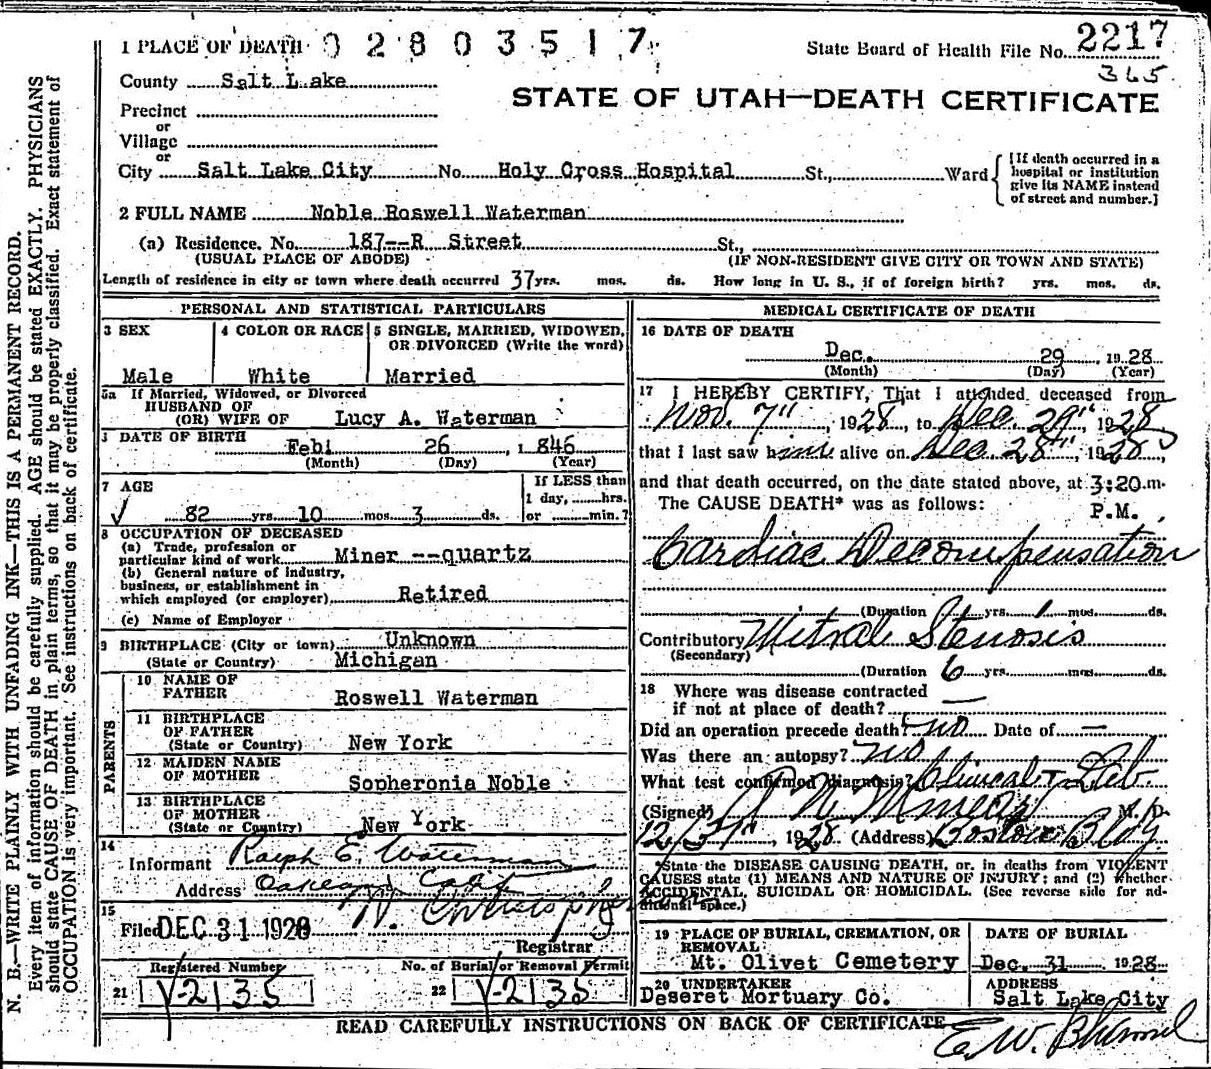 1 PLACE OF DEATH 02803517
State Board of Health File No. 2217
365
County Salt Lake
STATE OF UTAH—DEATH CERTIFICATE
Precinct
or
Village
or
City Salt Lake City No. Holy Cross Hospital St., Ward
[If death occurred in a
hospital or institution
give its NAME instead
of street and number.]
2 FULL NAME Noble Roswell Waterman
(a) Residence. No. 187--R Street St.,
(USUAL PLACE OF ABODE) (IF NON-RESIDENT GIVE CITY OR TOWN AND STATE)
Length of residence in city or town where death occurred 37 yrs. mos. ds. How long in U. S., if of foreign birth? yrs. mos. ds.
PERSONAL AND STATISTICAL PARTICULARS
3 SEX
Male
4 COLOR OR RACE
White
5 SINGLE, MARRIED, WIDOWED,
OR DIVORCED (Write the word)
Married
5a If Married, Widowed, or Divorced
HUSBAND OF
(OR) WIFE OF Lucy A. Waterman
DATE OF BIRTH
Feb. 26, 1846
(Month) (Day) (Year)
7 AGE
82 yrs. 10 mos. 3 ds.
If LESS than
1 day, hrs.
or min.?
8 OCCUPATION OF DECEASED
(a) Trade, profession or
particular kind of work Miner --quartz
(b) General nature of industry,
business, or establishment in
which employed (or employer) Retired
(c) Name of Employer
9 BIRTHPLACE (City or town) Unknown
(State or Country) Michigan
PARENTS
10 NAME OF
FATHER Roswell Waterman
11 BIRTHPLACE
OF FATHER
(State or Country) New York
12 MAIDEN NAME
OF MOTHER Sopheronia Noble
13 BIRTHPLACE
OF MOTHER
(State or Country) New York
14
Informant Ralph E. Waterman
Address Oakland Calif
15
Filed DEC 31 1928
Registrar
Registered Number
21 V-2135
No. of Burial or Removal Permit
22 V-2135
MEDICAL CERTIFICATE OF DEATH
16 DATE OF DEATH
Dec. 29, 1928
(Month) (Day) (Year)
17 I HEREBY CERTIFY, That I attended deceased from
Nov. 7", 1928, to Dec. 29", 1928
that I last saw him alive on Dec 28", 1928,
and that death occurred, on the date stated above, at 3:20 m.
The CAUSE DEATH* was as follows: P.M.
Cardiac Decompensation
(Duration yrs. 1 mos. ds.
Contributory Mitral Stenosis
(Secondary)
(Duration 6 yrs. mos. ds.
18 Where was disease contracted
if not at place of death? —
Did an operation precede death? no Date of —
Was there an autopsy? no
What test confirmed diagnosis? Clinical + Lab
(Signed) M. D.
12/31", 1928. (Address) Boston Bldg
*State the DISEASE CAUSING DEATH, or, in deaths from VIOLENT
CAUSES state (1) MEANS AND NATURE OF INJURY; and (2) whether
ACCIDENTAL, SUICIDAL OR HOMICIDAL. (See reverse side for ad-
ditional space.)
19 PLACE OF BURIAL, CREMATION, OR
REMOVAL
Mt. Olivet Cemetery
DATE OF BURIAL
Dec. 31 1928
20 UNDERTAKER
Deseret Mortuary Co.
ADDRESS
Salt Lake City
READ CAREFULLY INSTRUCTIONS ON BACK OF CERTIFICATE
E. W.
N. B.—WRITE PLAINLY WITH UNFADING INK—THIS IS A PERMANENT RECORD.
Every item of information should be carefully supplied. AGE should be stated EXACTLY. PHYSICIANS
should state CAUSE OF DEATH in plain terms, so that it may be properly classified. Exact statement of
OCCUPATION is very important. See instructions on back of certificate.